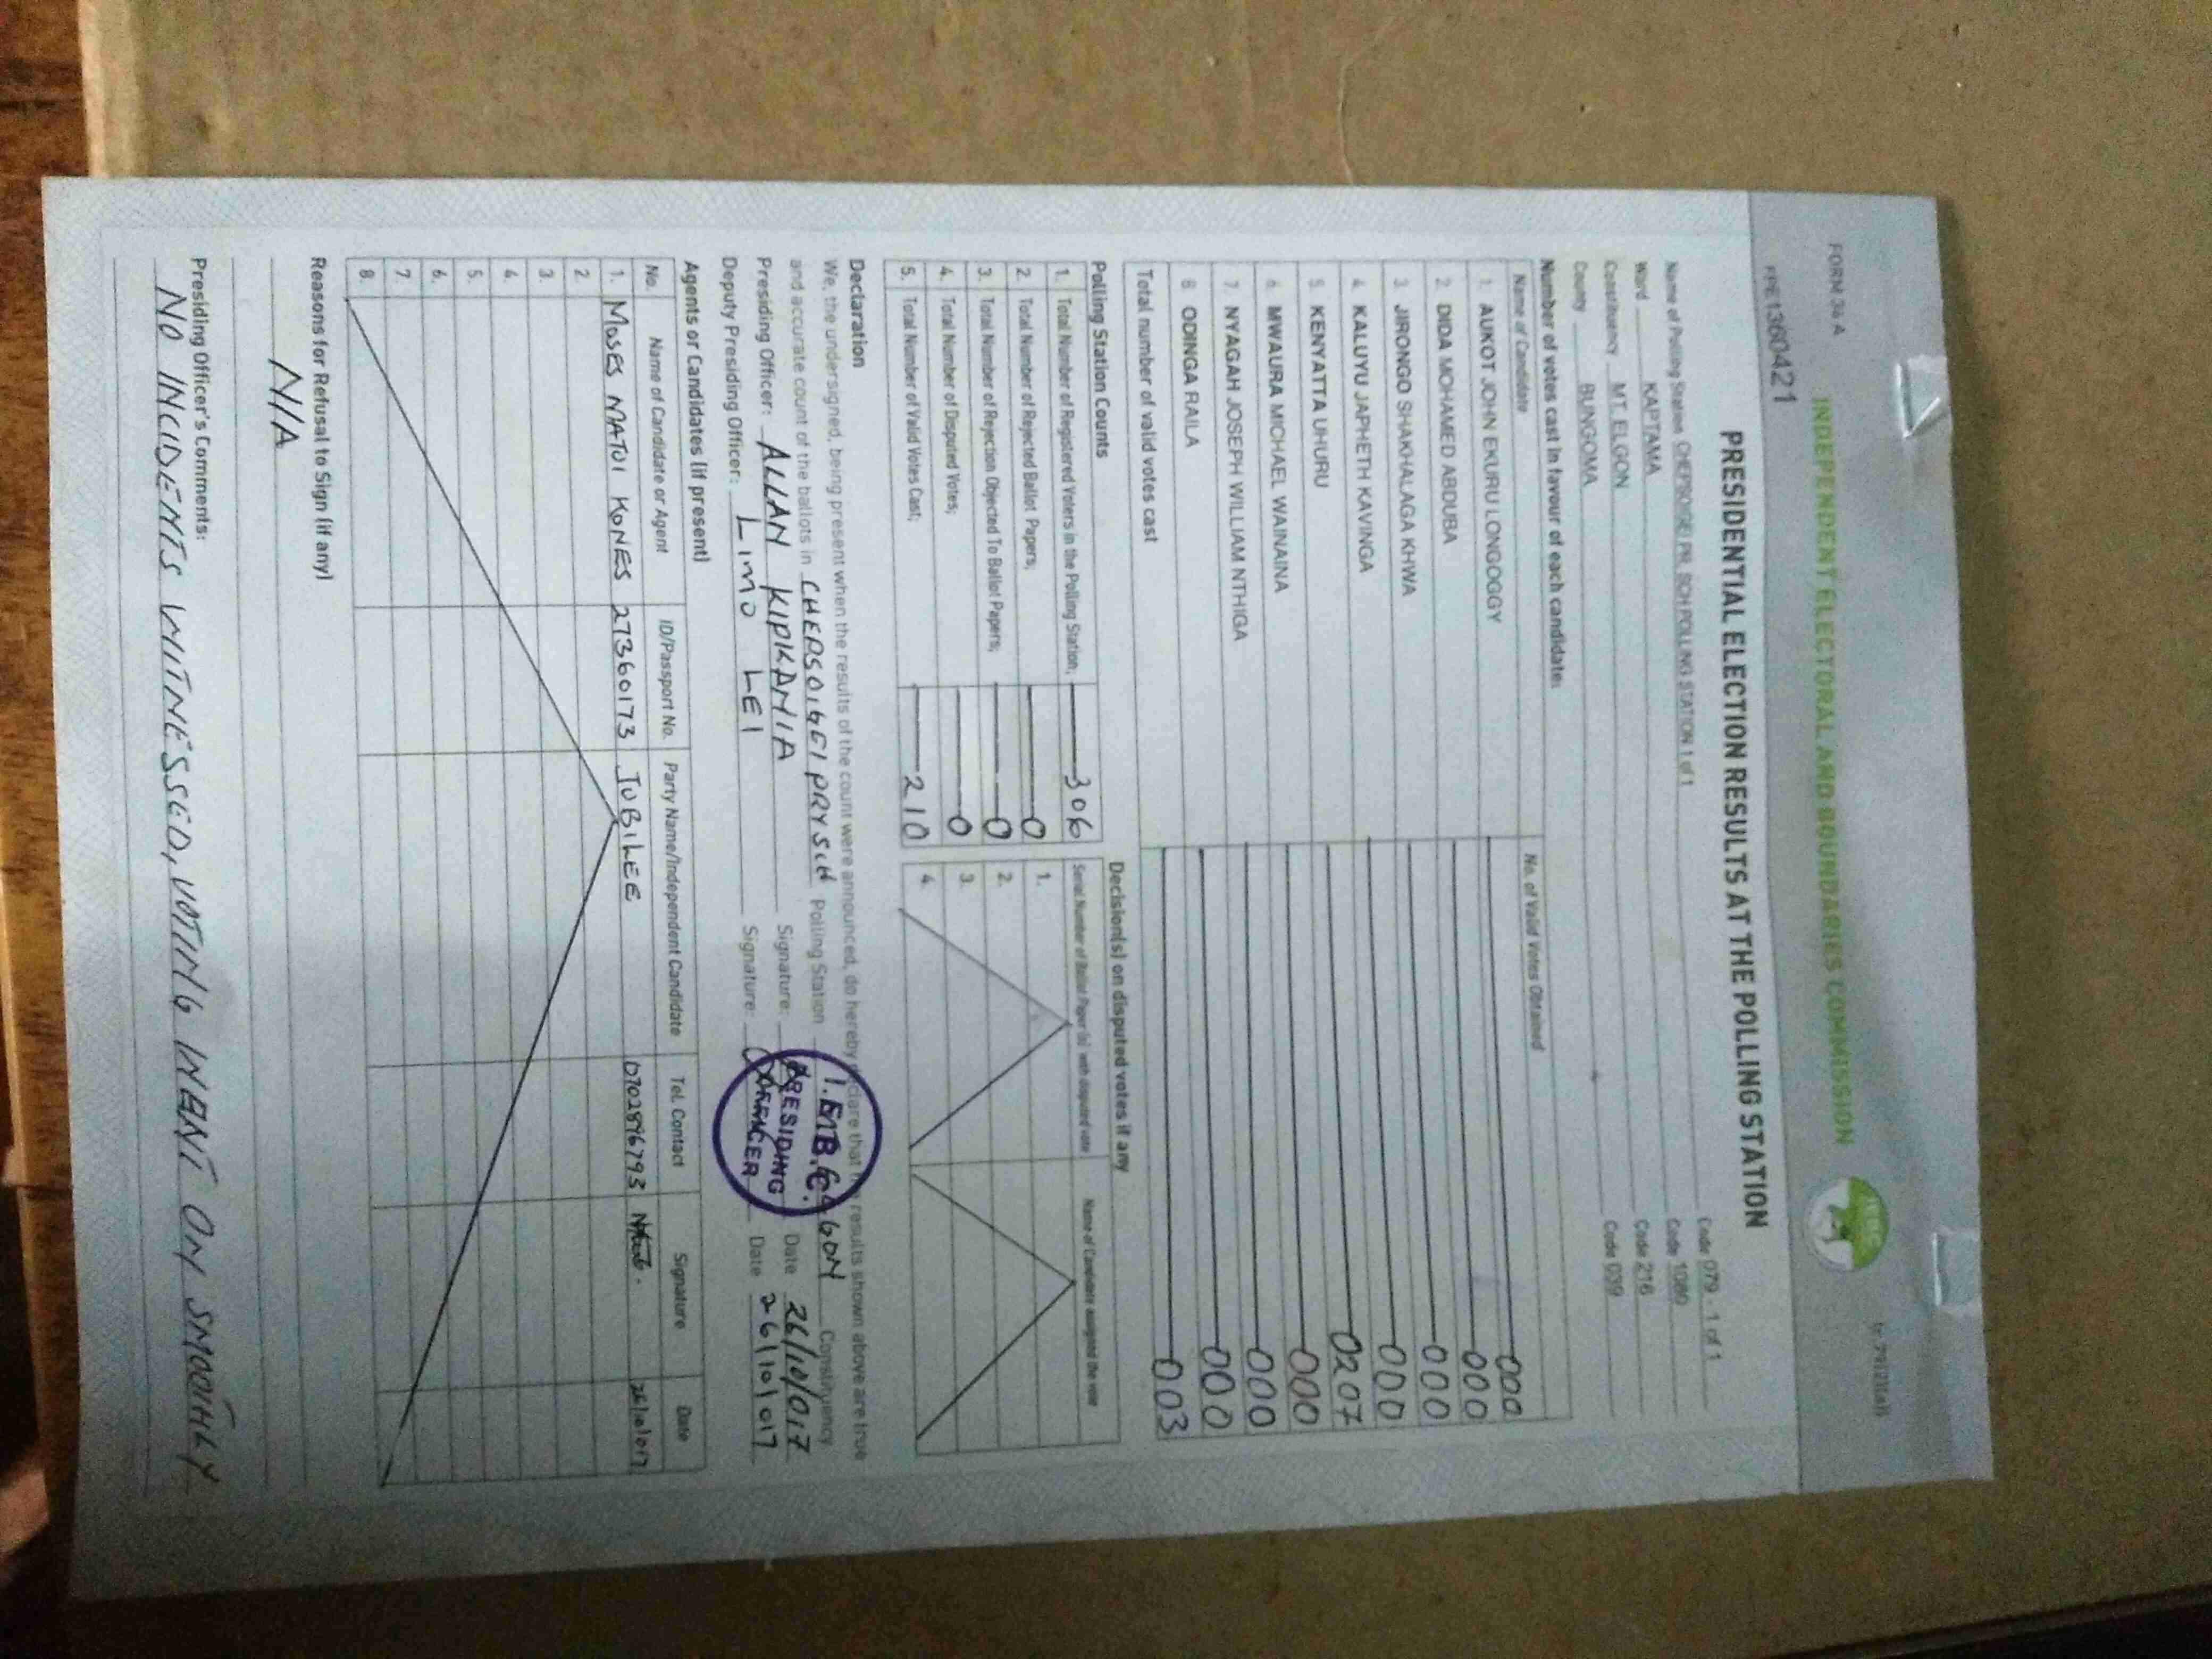 FORM 34 A
INDEPENDENT ELECTORAL AND BOUNDARIES COMMISSION
1360421
PRESIDENTIAL ELECTION RESULTS AT THE POLLING STATION
Name of Polling Station CHEPSOIGEI PR. SCH POLLING STATION 1 of 1 Code 079 - 1 of 1
Ward KAPTAMA Code 1080
Constituency MT. ELGON Code 216
County BUNGOMA Code 039
Number of votes cast in favour of each candidate:
Name of Candidate No. of Valid Votes Obtained
1. AUKOT JOHN EKURU LONGOGGY 000
2. DIDA MOHAMED ABDUBA 000
3. JIRONGO SHAKHALAGA KHWA 000
4. KALUYU JAPHETH KAVINGA 000
5. KENYATTA UHURU 0207
6. MWAURA MICHAEL WAINAINA 000
7. NYAGAH JOSEPH WILLIAM NTHIGA 000
8. ODINGA RAILA 000
Total number of valid votes cast 003
Polling Station Counts
1. Total Number of Registered Voters in the Polling Station; 306
2. Total Number of Rejected Ballot Papers; 0
3. Total Number of Rejection Objected To Ballot Papers; 0
4. Total Number of Disputed Votes; 0
5. Total Number of Valid Votes Cast; 210
Decision(s) on disputed votes if any
Serial Number of Ballot Paper (s) with disputed vote Name of Candidate assigned the vote
1.
2.
3.
4.
Declaration
We, the undersigned, being present when the results of the count were announced, do hereby declare that the results shown above are true
and accurate count of the ballots in CHEPSOIGEI PRY SCH Polling Station Constituency
Presiding Officer: ALLAN KIPIKANIA Signature: Date 26/10/017
Deputy Presiding Officer: LIMO LEI Signature: Date 26/10/017
I.E.B.C.
PRESIDING
OFFICER
Agents or Candidates (if present)
No. Name of Candidate or Agent ID/Passport No. Party Name/Independent Candidate Tel. Contact Signature Date
1. MOSES MATUI KONES 27360173 JUBILEE 0702896793 26/10/017
2.
3.
4.
5.
6.
7.
8.
Reasons for Refusal to Sign (if any)
N/A
Presiding Officer's Comments:
NO INCIDENTS WITNESSED, VOTING WENT ON SMOOTHLY